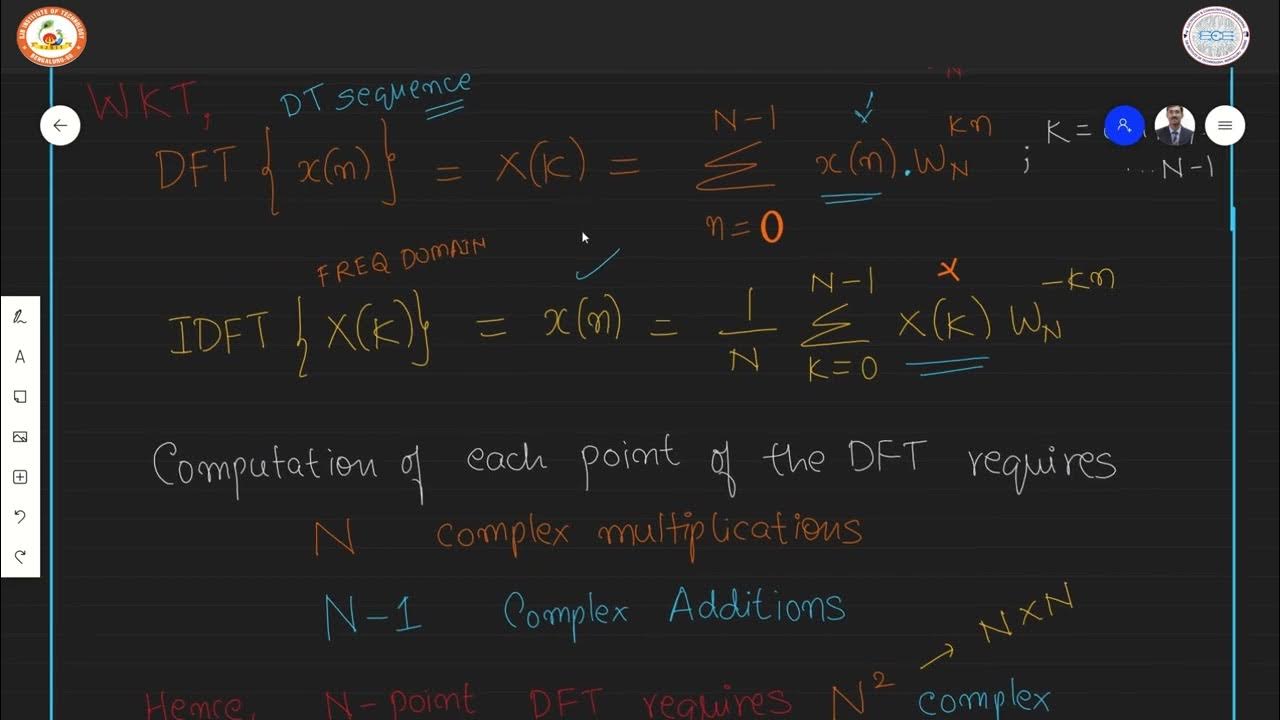 SJB INSTITUTE OF TECHNOLOGY
BENGALURU-60
ECE
WKT,
DT sequence
N
DFT { x(n) } = X(K) = N-1 Σ n=0 x(n) . W_N^Kn ; K =
... N-1
FREQ DOMAIN
IDFT { X(K) } = x(n) = 1/N N-1 Σ K=0 X(K) W_N^-Kn
Computation of each point of the DFT requires
N complex multiplications
N-1 Complex Additions
N×N
Hence, N-point DFT requires N² complex
A